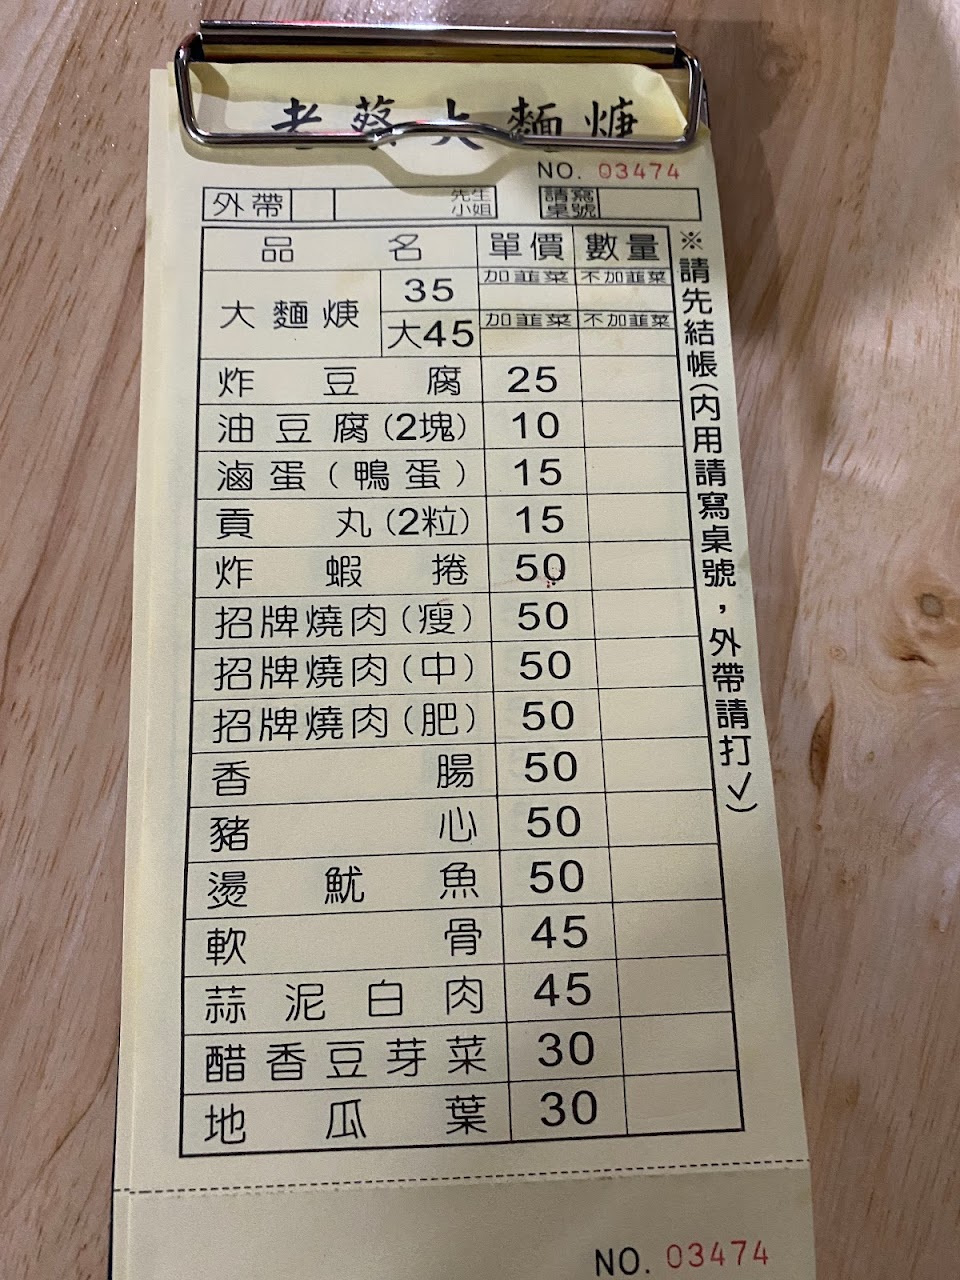 老蔡大麵焿
NO. 03474
外帶 先生 小姐 請寫桌號
品名 單價 數量
大麵焿 35 加韮菜 不加韮菜
大45 加韮菜 不加韮菜
炸豆腐 25
油豆腐(2塊) 10
滷蛋(鴨蛋) 15
貢丸(2粒) 15
炸蝦捲 50
招牌燒肉(瘦) 50
招牌燒肉(中) 50
招牌燒肉(肥) 50
香腸 50
豬心 50
燙魷魚 50
軟骨 45
蒜泥白肉 45
醋香豆芽菜 30
地瓜葉 30
※請先結帳(內用請寫桌號，外帶請打✓)
NO. 03474